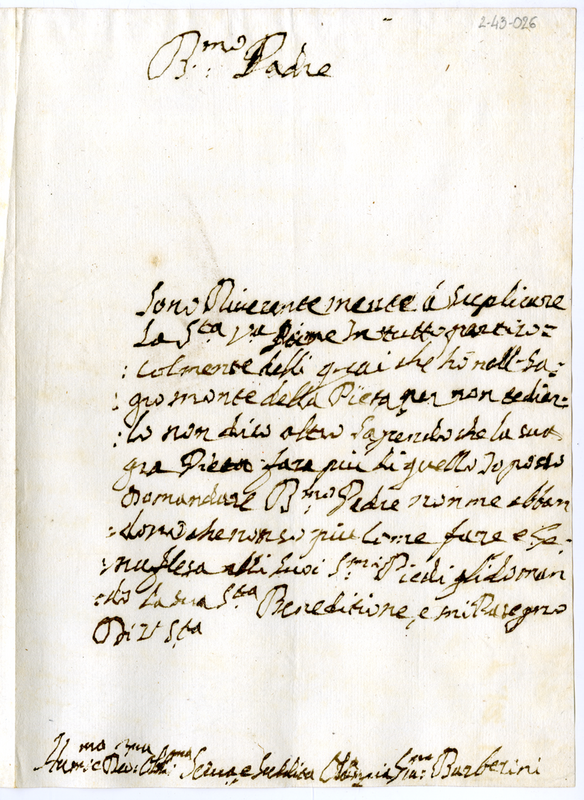 2-43-026
B.mo Padre
Sono Riverentemente á Suplicare
La S.ta V.ra in tutto partico=
:colmente delli guai che hó nell Sa=
gro monte della Pieta per non tedier=
:lo non dico altro Sapendo che la sua
gra Pieta fara piu di quello Io posso
Domandare B.mo Padre non me abban
:dona che non so piu come fare e Ge=
:nuflesa alli suoi S.mi Piedi gli doman
:do La sua S.ta Beneditione, e mi Rasegno
Di V. S.ta
Hum.ma Serva, e Suddita Olimpia Barberini